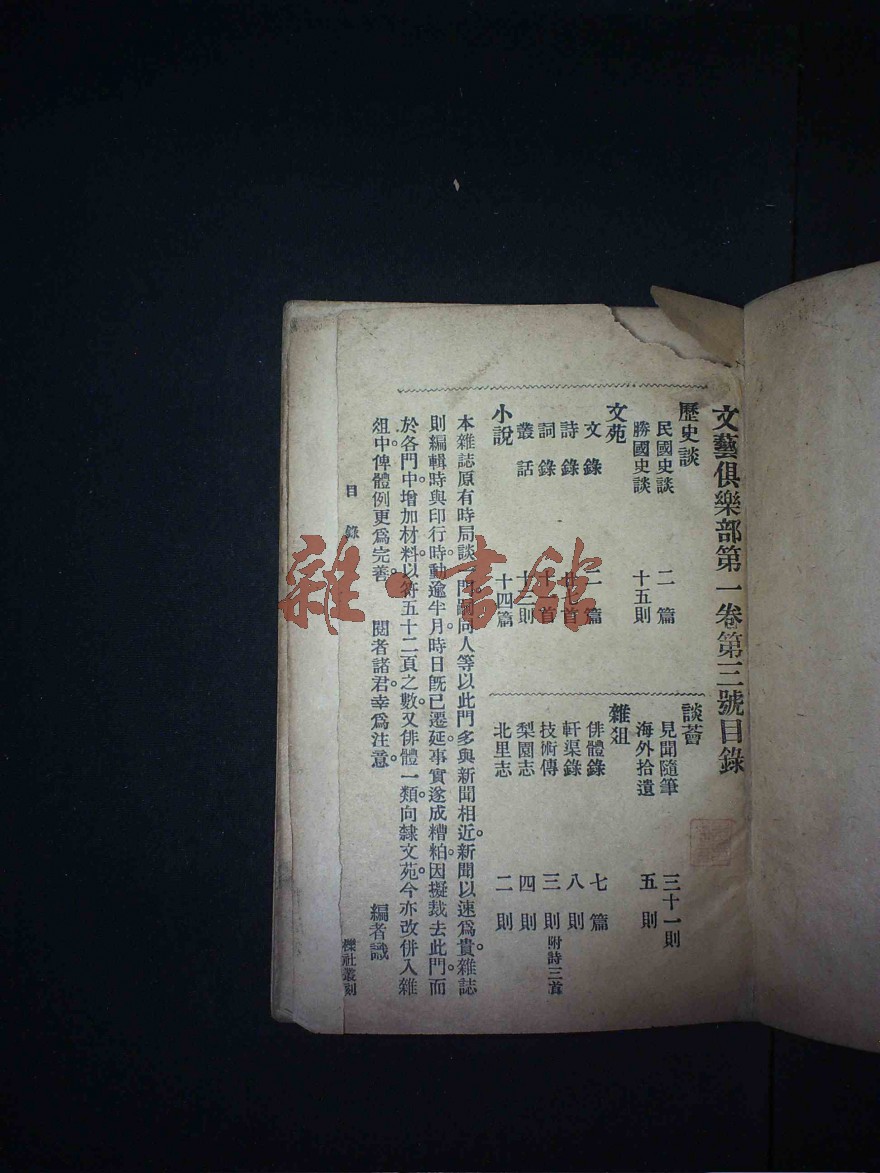 文藝俱樂部第一卷第三號目錄
歷史談
民國史談 二篇
勝國史談 十五則
文苑
文錄 篇
詩錄 首
詞錄 首
叢話 十二則
小說 十四篇
談薈
見聞隨筆 三十一則
海外拾遺 五則
雜俎
俳體錄 七篇
軒渠錄 八則
技術傳 三則附詩三首
梨園志 四則
北里志 二則
本雜誌原有時局談一門嗣同人等以此門多與新聞相近。新聞以速爲貴。雜誌
則編輯時與印行時動逾半月時日既已遷延事實遂成糟粕。因擬裁去此門。而
於各門中增加材料。以符五十二頁之數。又俳體一類。向隸文苑。今亦改併入雜
俎中。俾體例更爲完善。 閱者諸君。幸爲注意。
編者識
目錄
櫟社叢刻
雜·書館